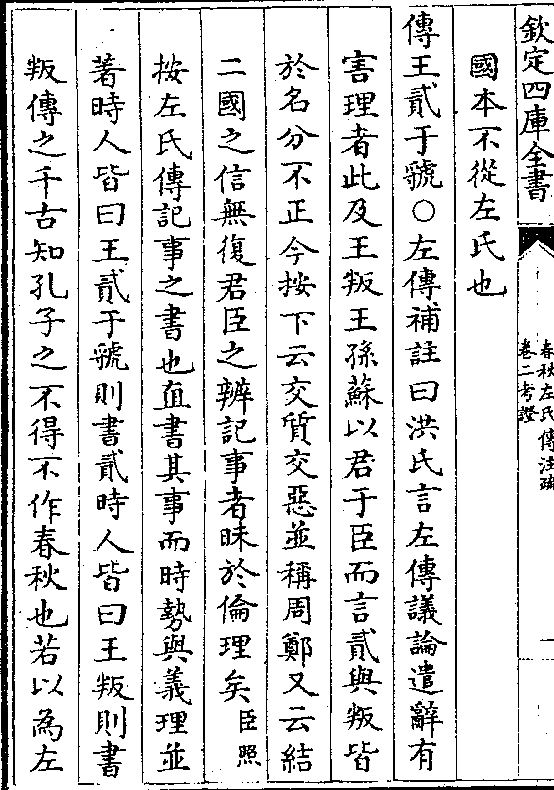 欽定四庫全書
春秋左氏傳注疏
卷二考證
一
國本不從左氏也
傳王貳于虢○左傳補註曰洪氏言左傳議論遣辭有
害理者此及王叛王孫蘇以君于臣而言貳與叛皆
於名分不正今按下云交質交惡並稱周鄭又云結
二國之信無復君臣之辨記事者昧於倫理矣臣照
按左氏傳記事之書也直書其事而時勢與義理並
著時人皆曰王貳于虢則書貳時人皆曰王叛則書
叛傳之千古知孔子之不得不作春秋也若以為左